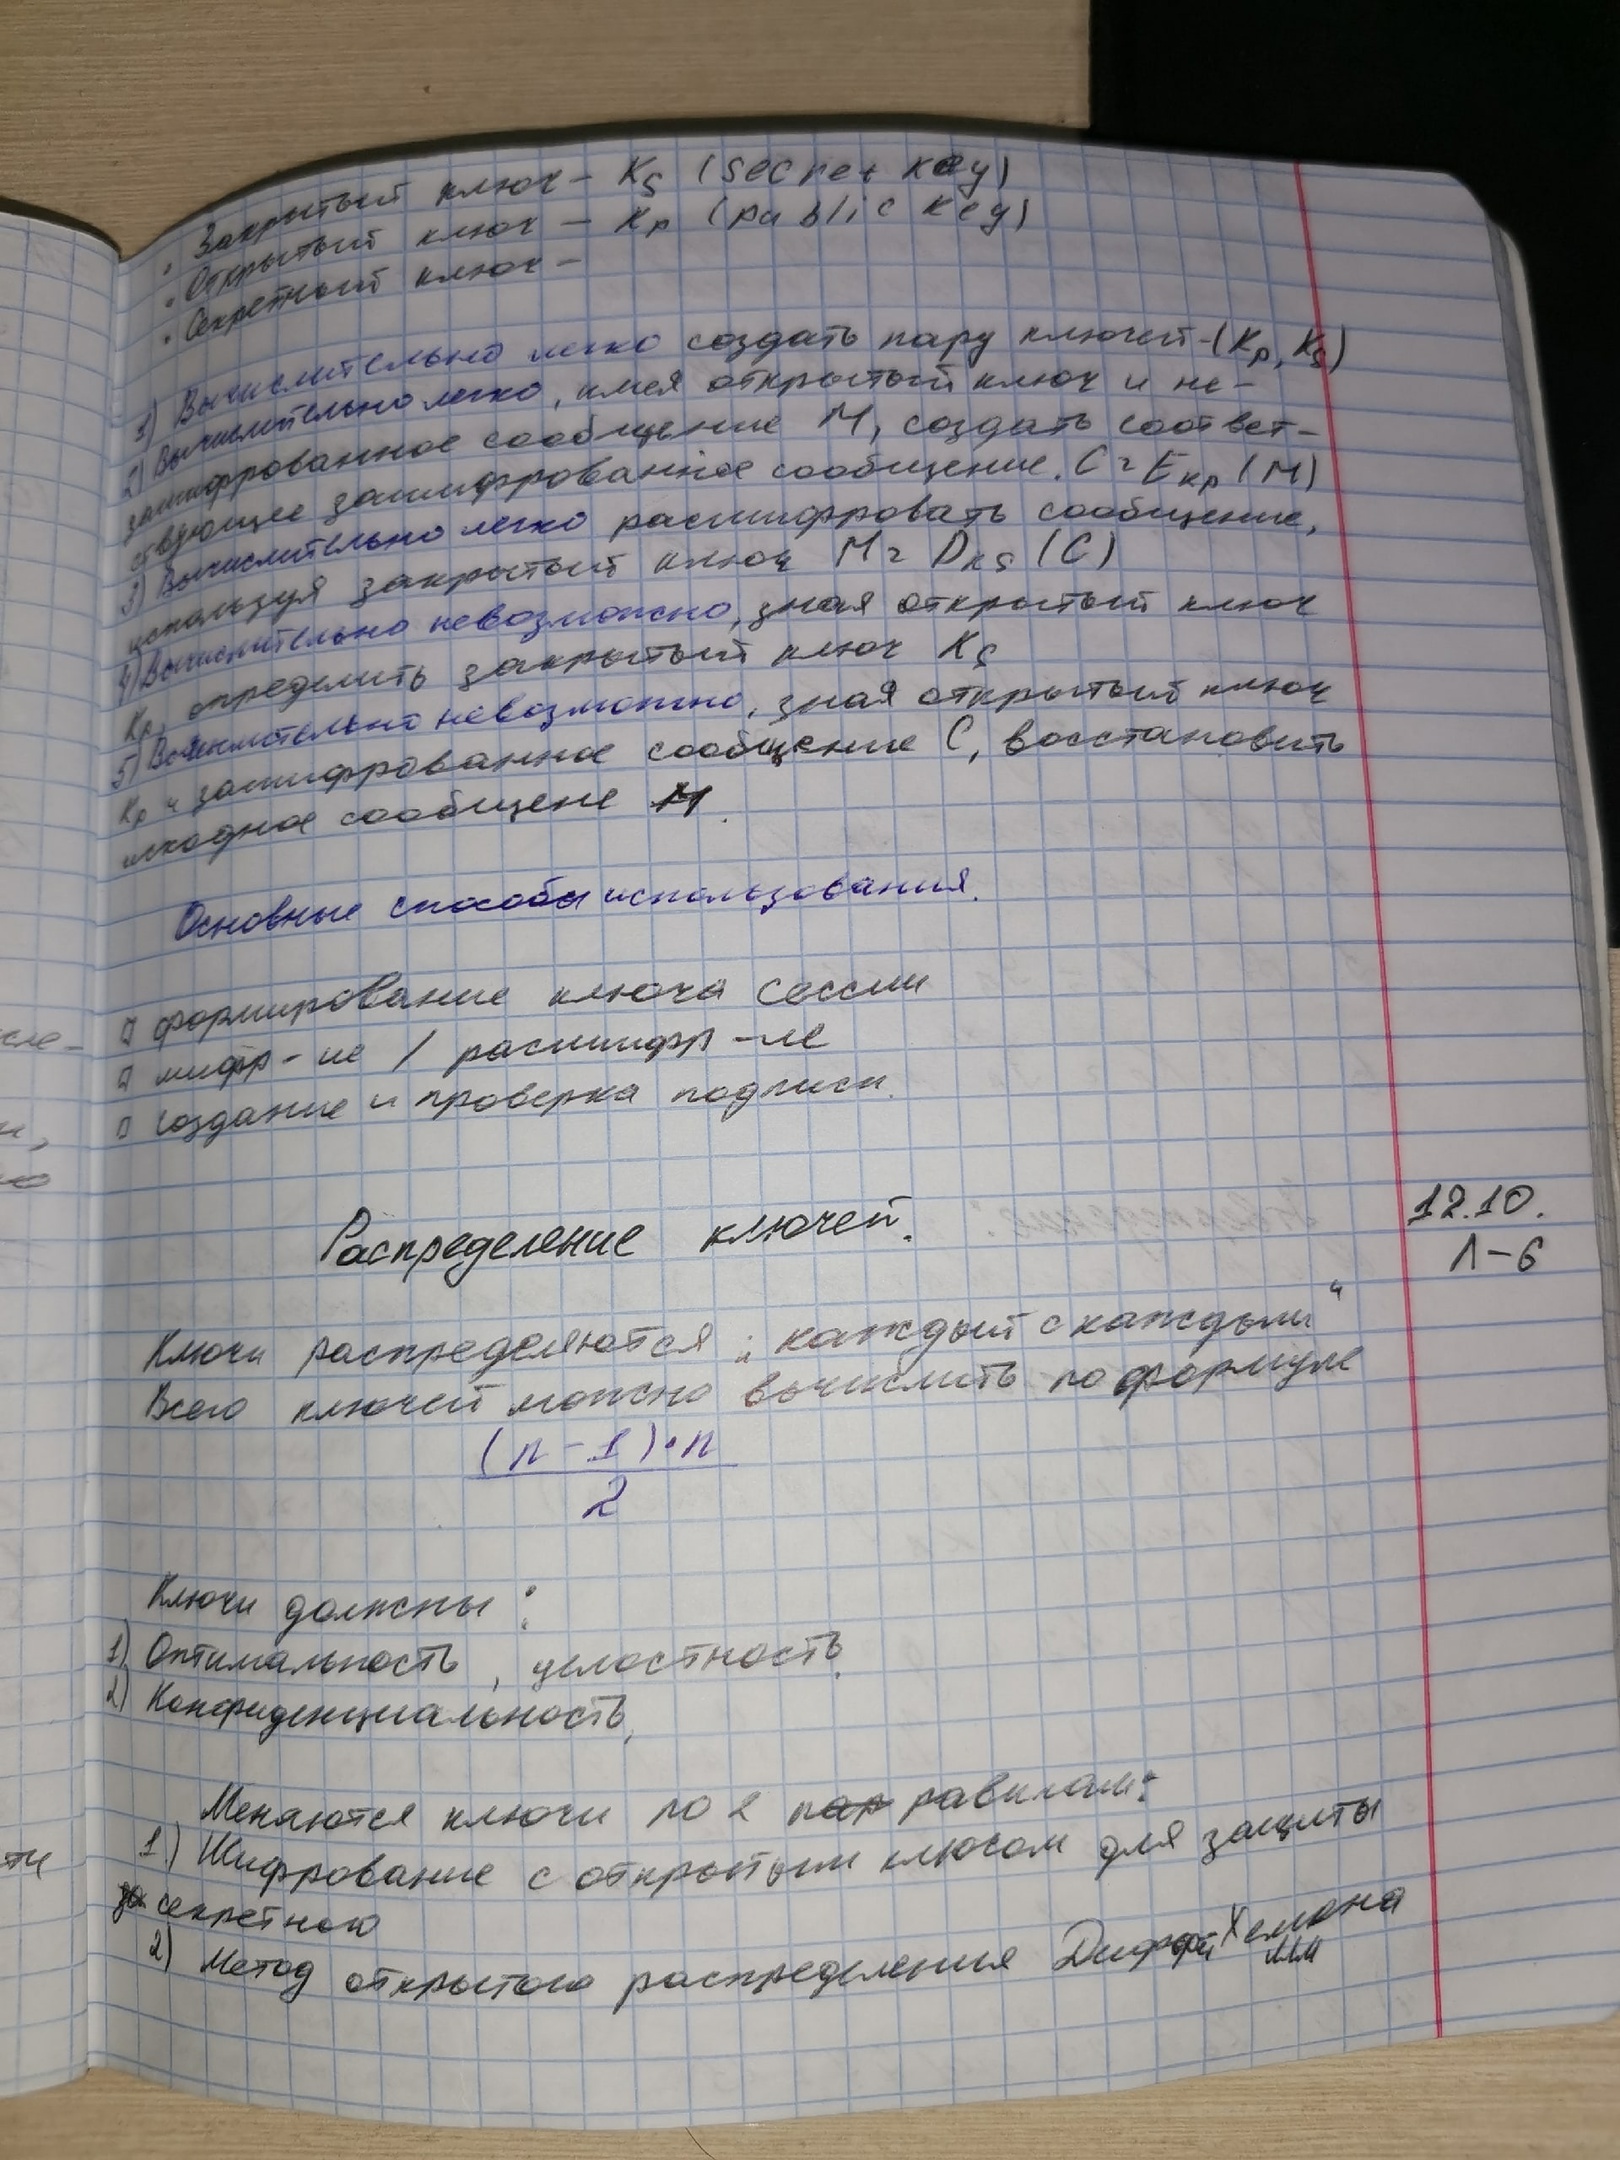 · Закрытый ключ – Ks (secret key)
· Открытый ключ – Kp (public key)
· Секретный ключ –
1) Вычислительно легко создать пару ключей – (Kp, Ks)
2) Вычислительно легко, имея открытый ключ и не-
зашифрованное сообщение M, создать соответ-
ствующее зашифрованное сообщение. C = Eкр (M)
3) Вычислительно легко расшифровать сообщение,
используя закрытый ключ M = Dks (C)
4) Вычислительно невозможно, зная открытый ключ
Kp, определить закрытый ключ Ks
5) Вычислительно невозможно, зная открытый ключ
Kp и зашифрованное сообщение C, восстановить
исходное сообщене M.
Основные способы использования.
формирование ключа сессии
шифр-ие / расшифр-ие
создание и проверка подписи.
12.10.
Л-6
Распределение ключей.
Ключи распределяются „каждый с каждым“
Всего ключей можно вычислить по формуле
(n - 1)·n
2
Ключи должны:
1) Оптимальность, целостность.
2) Конфиденциальность,
Меняются ключи по 2 пар равилам:
1.) Шифрование с открытым ключом для защиты
секретного
2) Метод открытого распределения Диффи Хемона
лм
сле-
и,
но
ти